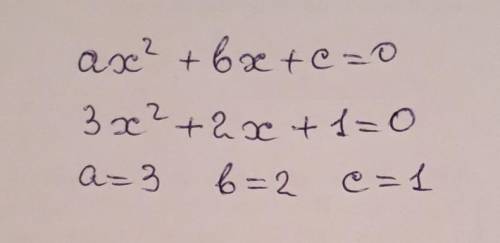 ax² + bx + c = 0
3x² + 2x + 1 = 0
a = 3 b = 2 c = 1